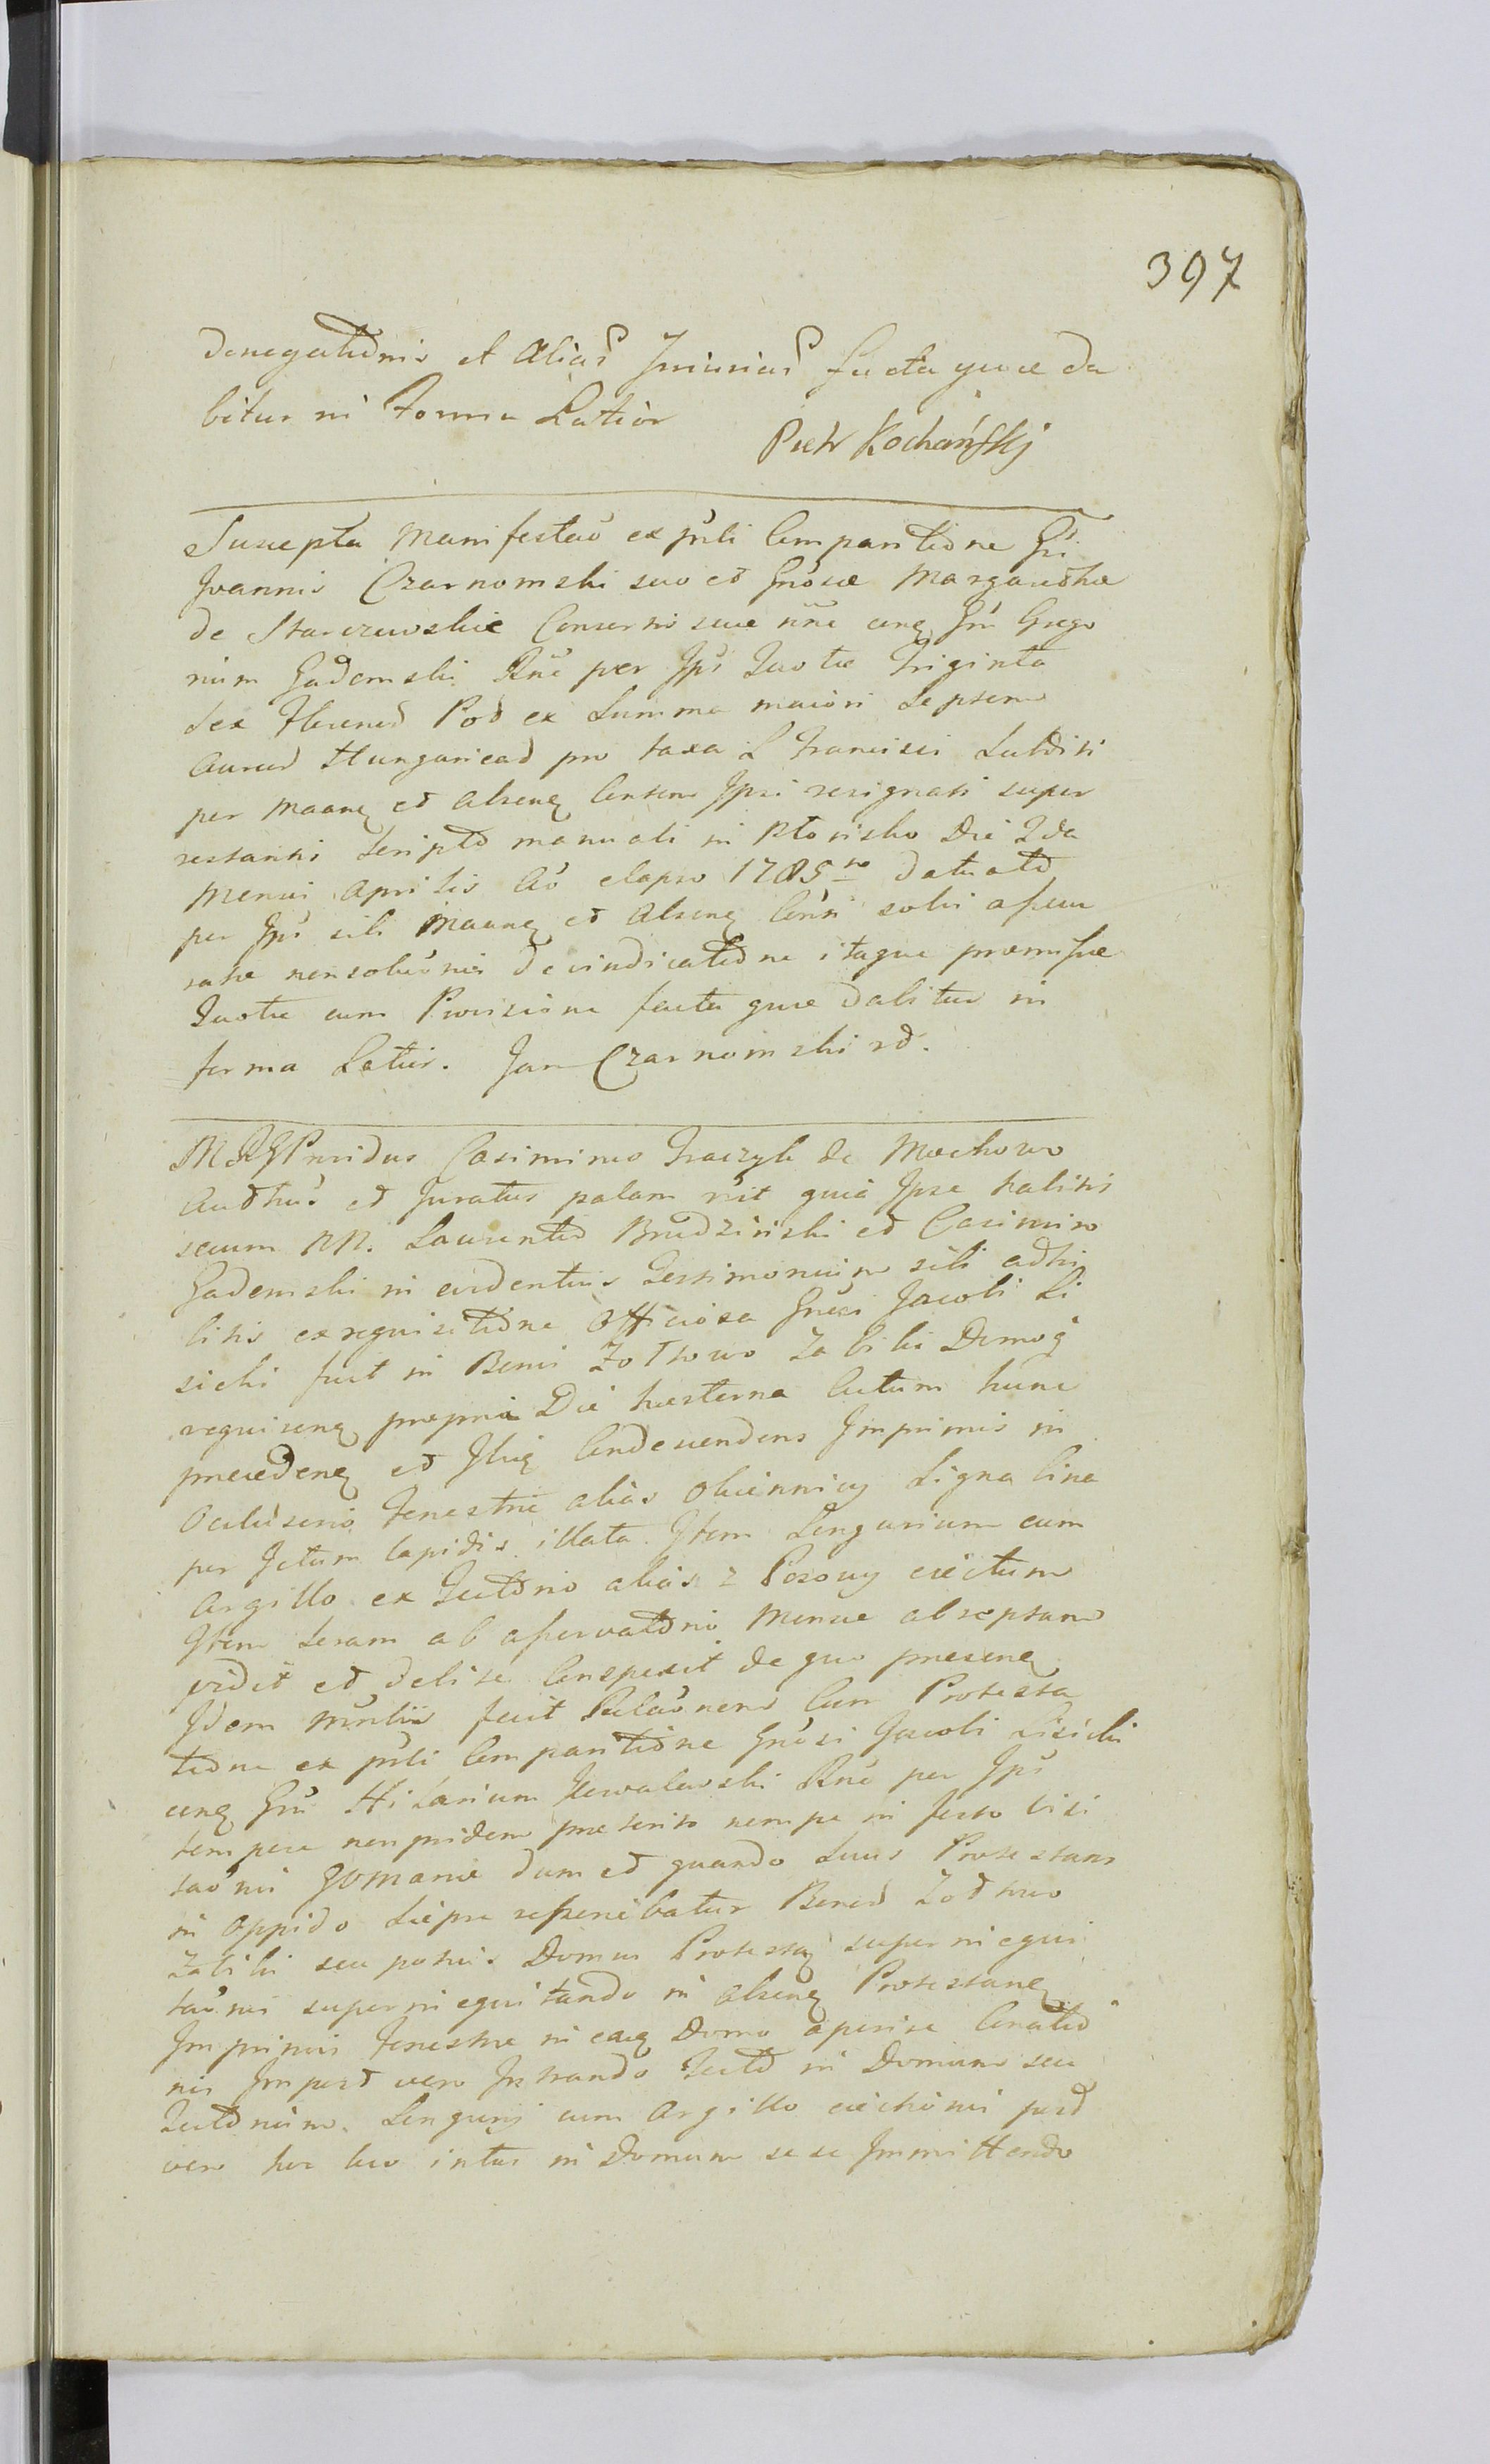 397
denegationis et Alias Iniurias facta quae da
bitur in Forma Latior
Piotr Kochańskj
Suscepta Manifestaõ ex pñli Comparitione Gsi
Joannis Czarnomski suo et Gnosae Margarethae
de Starczewskie Consortis suae nñe cenq Gm Grego
rium Gadomski Rñe per Ips Quotae Triginta
sex Florenos Pol ex Summa maiori Septem
Aureos Hungaricad pro taxa S Francisci Lutosi
per Maanq et absenq Consen Ipsi resignati super
restanti Scripto manuali in Ktorisko Die 2da
Mensis Aprilis Aõ elapso 1785to datuatd
per Ips sili Maanq et Absenq Consi solvi assecu
ratae nonsolucõnis devindicatione itaque praemissae
Quotae cum Provisione facta quae dabitur in
forma Latior. Jan Czarnomski rd.
MRGProvidus Casimirus Traczyk de Mochowo
Authus et Juratus palam rñit quia Ipse habitis
secum NN. Laurentio Brudziński et Casimiro
Gadomski in evidentius Testimonium sibi adhi
bitis ex requisitione Officiosa Gnosi Jacobi Li
sicki fuit in Bonis Zołtowo Zabiki Domoq
requirenq propria Die hesterna Actum hunc
praecedenq et Ibiq Condescendens Imprimis in
Occlusorio Fenestrae alias Okiennicy Signa bina
per Jctum lapidis illata. Item Lingurium cum
Argillo ex Tectorio alias z Poszwy eiectum
Item Seram ab asservatorio Mensae abreptam
vidit et debite Conspexit de quo praesenq
Idem Mñlis fecit Relaõnem Cum Protesta
tione ex pñli Comparitione Gnosi Jacobi Lisicki
cenq Gm Hilarium Kowalewski Rñe per Ips
tempore non pridem praeterito nempe in festo Visi
taõnis BVMariae dum et quando Suus Protestans
in Oppido Sieprc reperiebatur Bonod Zołtowo
Zabiki seu potius Domus Protestq superinequi
taõnis superinequitando in absenq Protestanq
Imprimis Fenestrae in eaq Domo aperire Conatio
nis Impost vero Intrando Tecto in Domum seu
Tectorium. Lingurij cum Argillo eiectionis post
vero hoc loco intus in Domum sese Immittendo